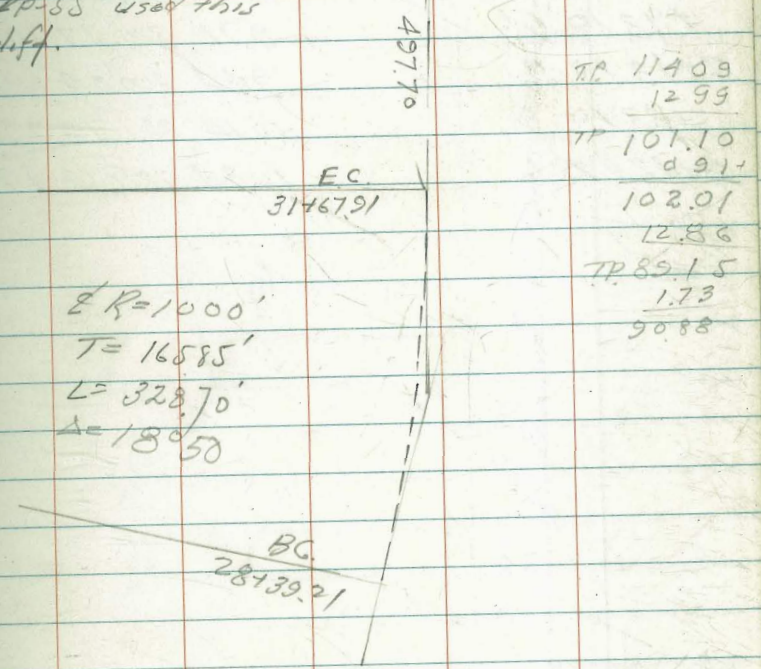 used this
497.70
E.C.
31+67.91
₵ R=1000'
T= 165.85'
L= 328.70'
Δ= 18°50
B.C.
28+39.21
T.P. 114 09
12 99
TP 101.10
0 91+
102.01
12.86
T.P. 89.15
1.73
90.88